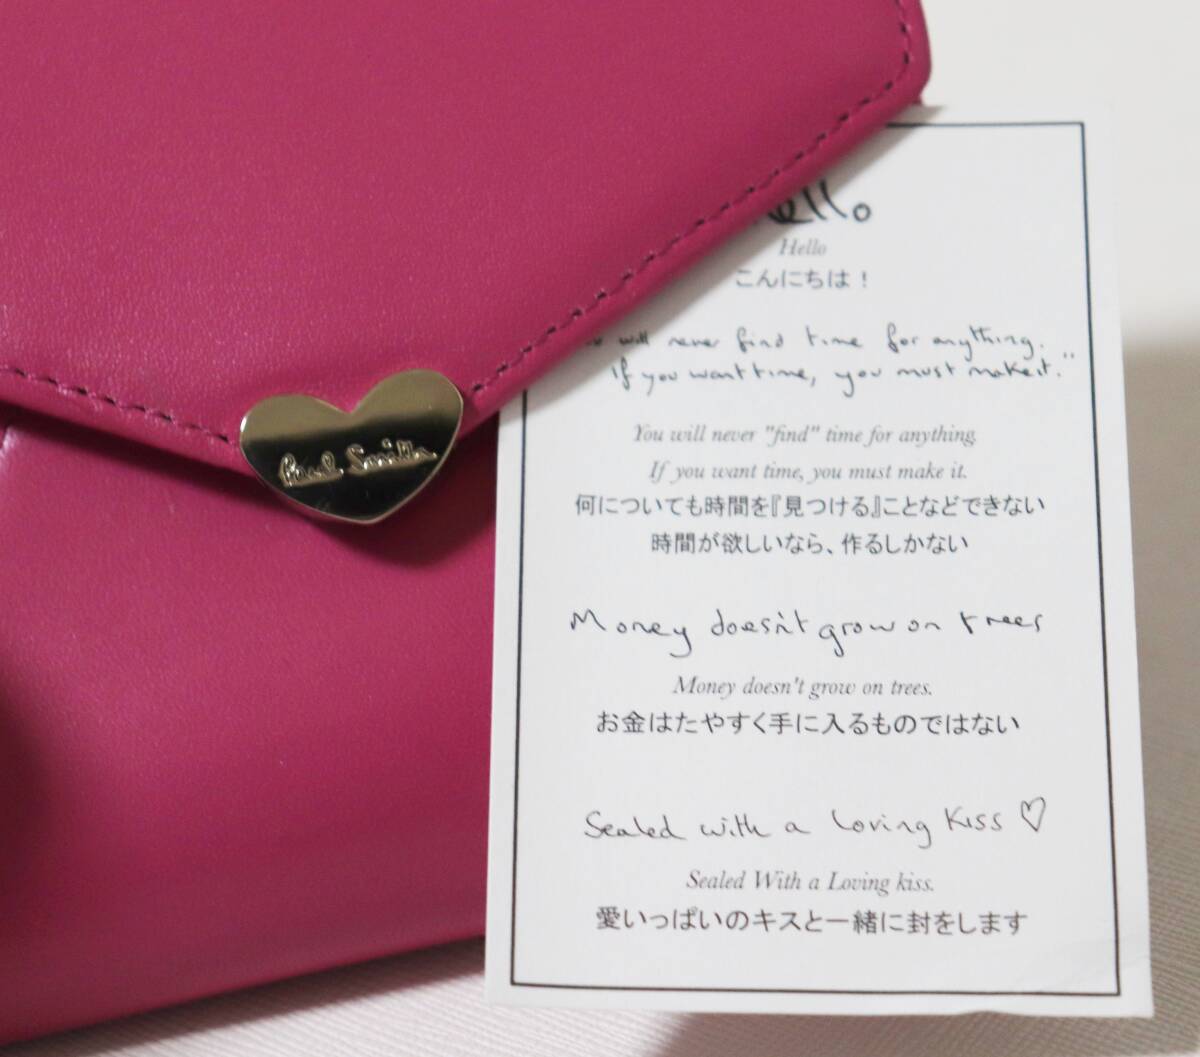 Paul Smith
Hello
こんにちは！
will never find time for anything.
If you want time, you must make it."
You will never "find" time for anything.
If you want time, you must make it.
何についても時間を『見つける』ことなどできない
時間が欲しいなら、作るしかない
Money doesn't grow on trees
Money doesn't grow on trees.
お金はたやすく手に入るものではない
Sealed with a loving kiss ♡
Sealed With a Loving kiss.
愛いっぱいのキスと一緒に封をします